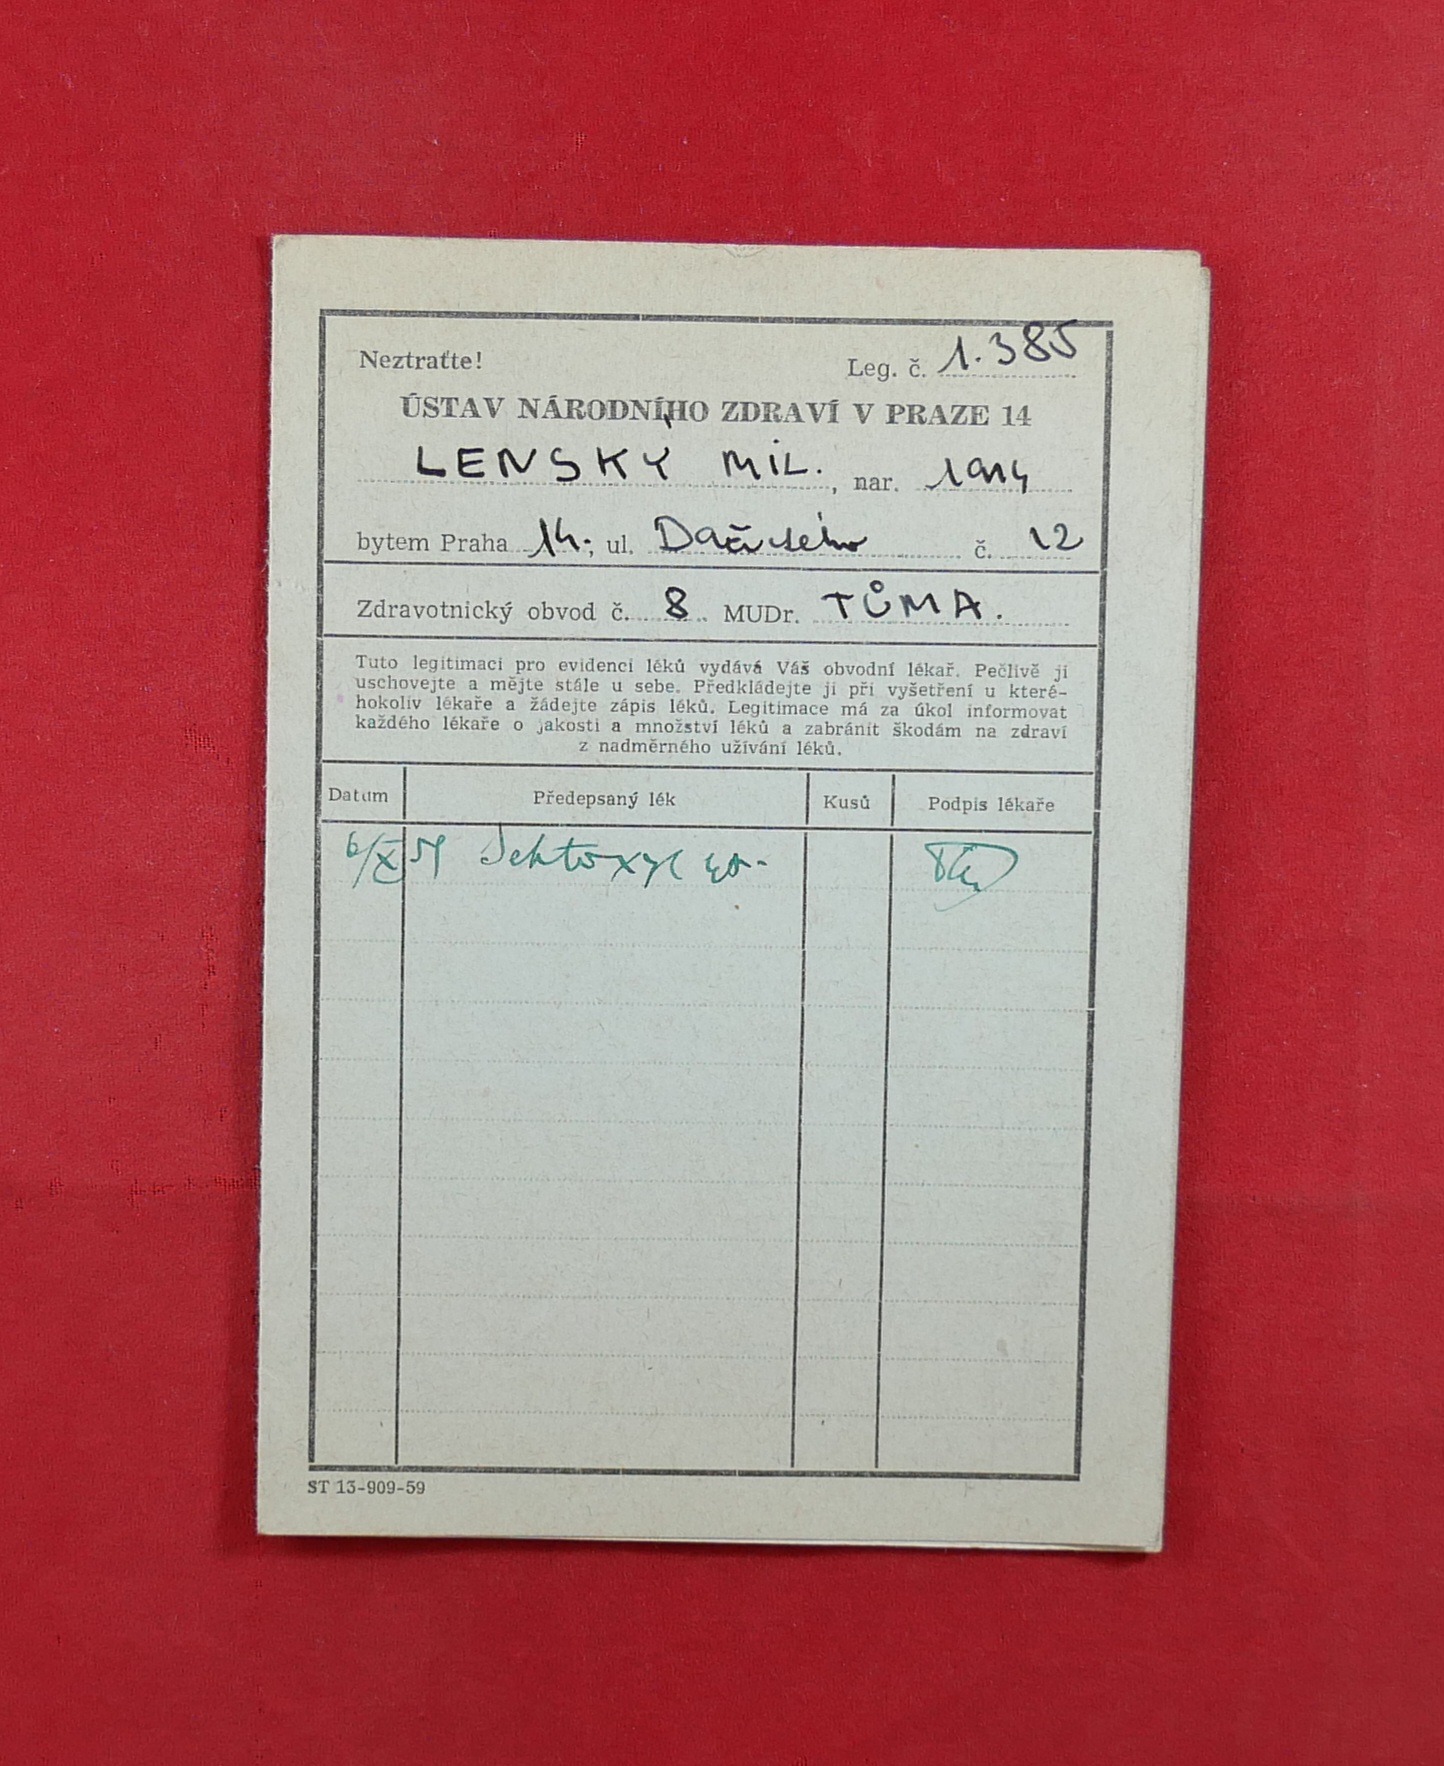 Neztraťte! Leg. č. 1.385
ÚSTAV NÁRODNÍHO ZDRAVÍ V PRAZE 14
LENSKÝ MIL., nar. 1914
bytem Praha 14.; ul. Dačického č. 12
Zdravotnický obvod č. 8 MUDr. TŮMA.
Tuto legitimaci pro evidenci léků vydává Váš obvodní lékař. Pečlivě ji
uschovejte a mějte stále u sebe. Předkládejte ji při vyšetření u které-
hokoliv lékaře a žádejte zápis léků. Legitimace má za úkol informovat
každého lékaře o jakosti a množství léků a zabránit škodám na zdraví
z nadměrného užívání léků.
Datum Předepsaný lék Kusů Podpis lékaře
6/X
ST 13-909-59